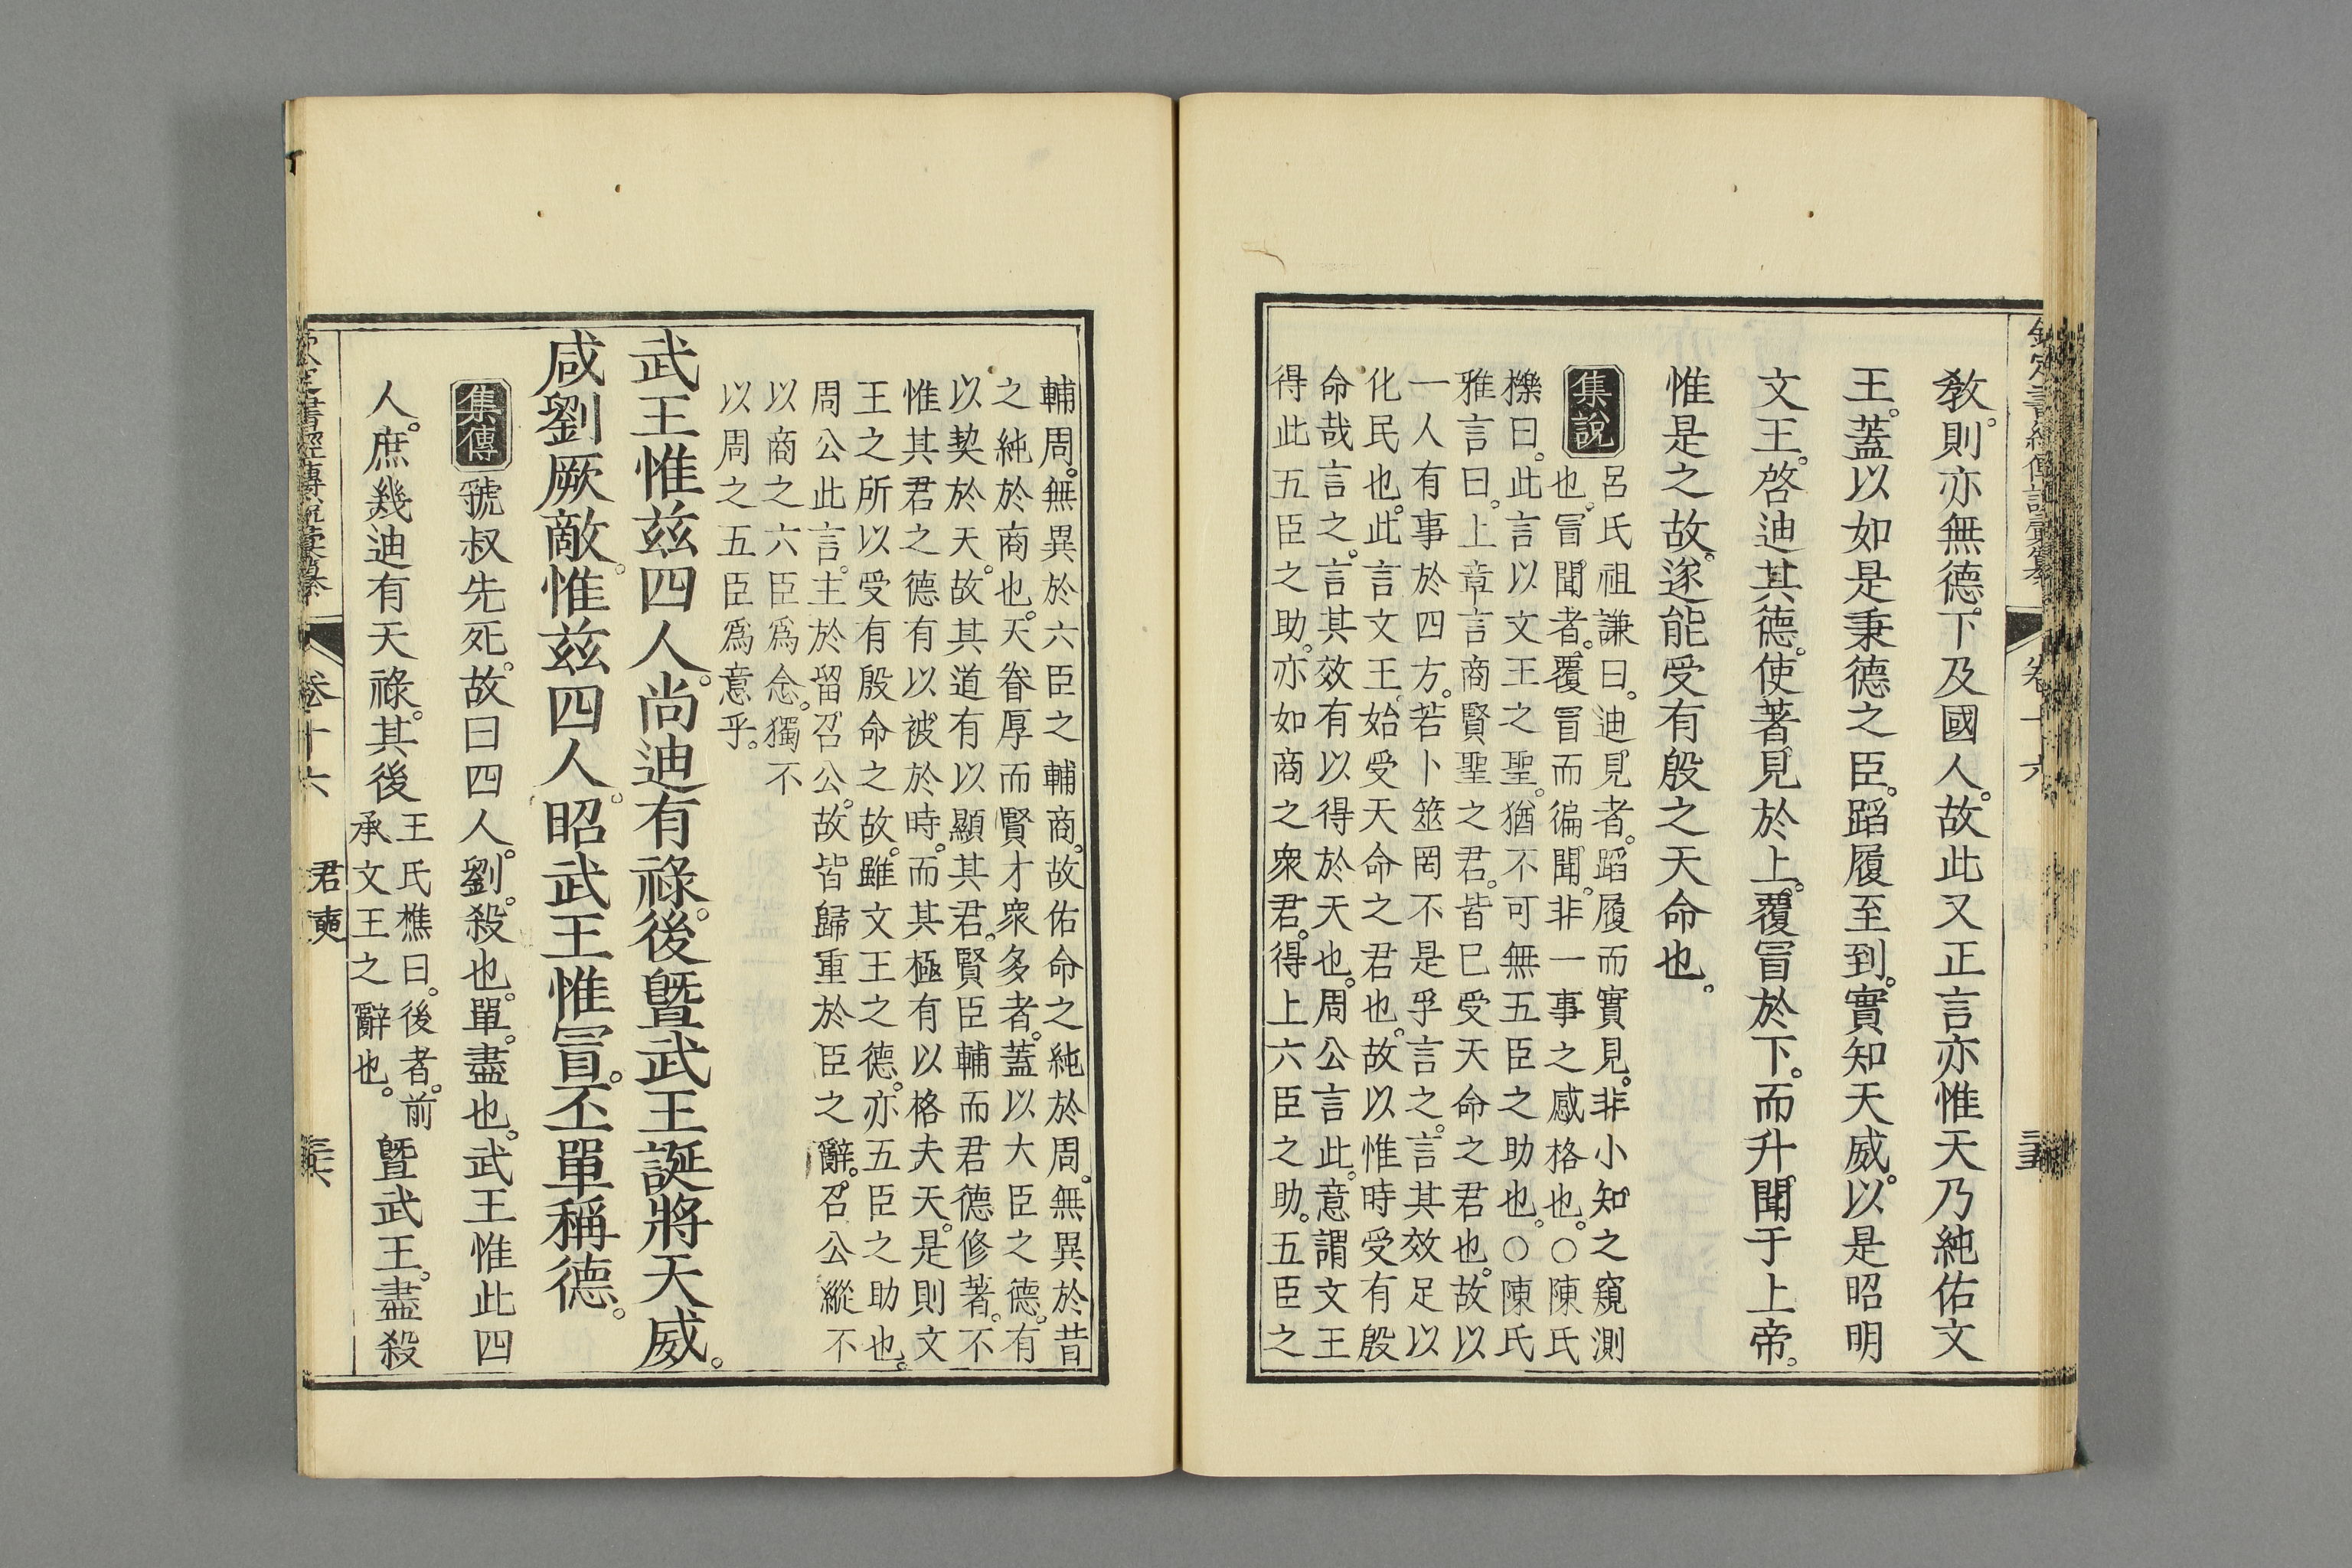 教。則亦無德。下及國人。故此又正言亦惟天乃純佑文
王。蓋以如是秉德之臣。蹈履至到。實知天威。以是昭明
文王。啓迪其德。使著見於上。覆冒於下。而升聞于上帝。
惟是之故。遂能受有殷之天命也。
集說
呂氏祖謙曰。迪見者。蹈履而實見。非小知之窺測
也。冒聞者。覆冒而徧聞。非一事之感格也。○陳氏
櫟曰。此言以文王之聖。猶不可無五臣之助也。○陳氏
雅言曰。上章言商賢聖之君。皆已受天命之君也。故以
一人有事於四方。若卜筮罔不是孚言之。言其效足以
化民也。此言文王。始受天命之君也。故以惟時受有殷
命哉言之。言其效有以得於天也。周公言此。意謂文王
得此五臣之助。亦如商之衆君。得上六臣之助。五臣之
輔周。無異於六臣之輔商。故佑命之純於周。無異於昔
之純於商也。天眷厚而賢才衆多者。蓋以大臣之德。有
以契於天。故其道有以顯其君。賢臣輔而君德修著。不
惟其君之德有以被於時。而其極有以格夫天。是則文
王之所以受有殷命之故。雖文王之德。亦五臣之助也。
周公此言。主於留召公。故皆歸重於臣之辭。召公縱不
以商之六臣爲念。獨不
以周之五臣爲意乎。
武王惟茲四人。尚迪有祿。後曁武王誕將天威。
咸劉厥敵。惟茲四人。昭武王惟冒。丕單稱德。
集傳
虢叔先死。故曰四人。劉。殺也。單。盡也。武王惟此四
人。庶幾迪有天祿。其後
王氏樵曰。後者。前
承文王之辭也。
曁武王。盡殺
欽定書經傳說彙纂
卷十六
君奭